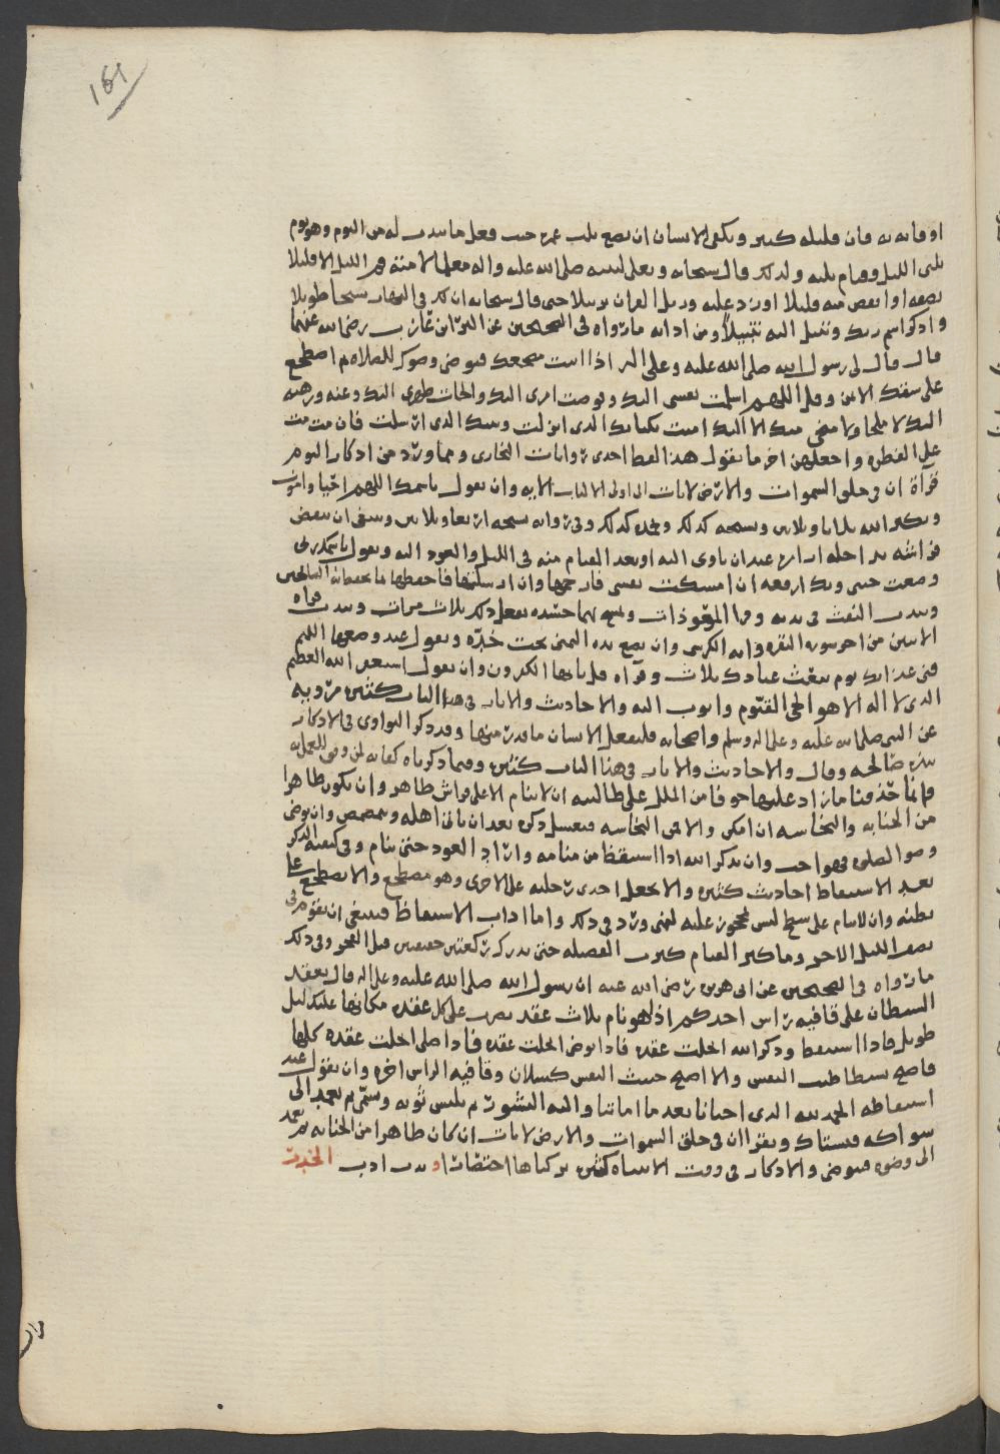 161
اوقاته به فان قليله كثير ويكفى الانسان ان يضع ثلث عمره حيث فعل ما يندب له من النوم وهو يوم
ثلثى الليل وقيام ثلثه ولذلك قال سبحانه وتعالى لنبيه صلى الله عليه واله قم الليل الا قليلا
نصفه او انقص منه قليلا او زد عليه ورتل القران ترتيلا حتى قال سبحانه ان لك فى النهار سبحا طويلا
واذكر اسم ربك وتبتل اليه تبتيلا ومن ادابه ما رواه فى الصحيحين عن البرا بن عازب رضى الله عنهما
قال قال لى رسول الله صلى الله عليه وعلى اله اذا اتيت مضجعك فتوضى وضوك للصلاه ثم اضطجع
على شقك الايمن وقل اللهم اسلمت نفسى اليك وفوضت امرى اليك والجات ظهرى اليك رغبه ورهبه
اليك لا ملجا ولا منجى منك الا اليك امنت بكتابك الذى انزلت ونبيك الذى ارسلت فان مت مت
على الفطره واجعلهن اخر ما تقول هذا لفظ احدى روايات البخارى ومما ورد من اذكار النوم
قرآة ان فى خلق السموات والارض لايات لاولى الالباب الايه وان يقول باسمك اللهم احيا واموت
ويكبر الله ثلاثا وثلاثين ويسبحه كذلك ويحمده كذلك وفى روايه يسبحه اربعا وثلاثين وينبغى ان ينفض
فراشه بداخله ازاره عند ان ياوى اليه او بعد القيام منه فى الليل والعود اليه ويقول باسمك ربى
وضعت جنبى وبك ارفعه ان امسكت نفسى فارحمها وان ارسلتها فاحفظها بما تحفظ به الصالحين
ويندب النفث فى يديه وقرا المعوذات ومسح بهما جسده يفعل ذلك ثلاث مرات ويندب قراه
الايتين من اخر سورة البقره وايه الكرسى وان يضع يده اليمنى تحت خده ويقول عند وضعها اللهم
قنى عذابك يوم تبعث عبادك ثلاث وقرآه قل ياايها الكفرون وان يقول استغفر الله العظيم
الذى لا اله الا هو الحى القيوم واتوب اليه والاحاديث والاثار فى هذا الباب كثيره مرويه
عن النبى صلى الله عليه وعلى اله وسلم واصحابه فليفعل الانسان ما قدر منها وقد ذكر النواوى فى الاذكار
نبذه صالحه وقال والاحاديث والاثار فى هذا الباب كثيره وفيما ذكرناه كفايه لمن وفق للعمل به
وانما حذفنا ما زاد عليها خوفا من الملل على طالبيه ان لا ينام الا على فراش طاهر وان يكون طاهرا
من الجنابه والنجاسه ان امكن والا من النجاسه فيغسل ذكره بعد ان ياتى اهله ويمضمض وان توضى
وضو الصلوه فهو احب وان يذكر الله اذا استيقظ من منامه واراد العود حتى ينام وفى كيفيه الذكر
بعد الاستيقاظ احاديث كثيره والا يجعل احدى رجليه على الاخرى وهو مضطجع والا يضطجع على
بطنه وان لا ينام على سطح ليس بمحجور عليه لنهى ورد فى ذلك واما اداب الاستيقاظ فينبغى ان يقوم فى
نصف الليل الاخر وما كثر القيام كثرت الفضيله حتى يدرك ركعتين خفيفتين قبل الفجر وفى ذلك
ما رواه فى الصحيحين عن ابى هريره رضى الله عنه ان رسول الله صلى الله عليه وعلى اله قال يعقد
الشيطان على قافيه راس احدكم اذا هو نام ثلاث عقد يضرب على كل عقده مكانها عليك ليل
طويل فاذا استيقظ وذكر الله انحلت عقده فاذا توضى انحلت عقده فاذا صلى انحلت عقده كلها
فاصبح نشيطا طيب النفس والا اصبح خبيث النفس كسلان وقافيه الراس اخره وان يقول عند
استيقاظه الحمد لله الذى احيانا بعد ما اماتنا واليه النشور ثم يلبس ثوبه ويسمى ثم يعمد الى
سواكه فيستاك ويقرا ان فى خلق السموات والارض لايات ان كان طاهرا من الجنابه ثم يعمد
الى وضوه فيتوضى والاذكار فى وقت الانتباه كثيره تركناها اختصارا وندب ادب الحديث